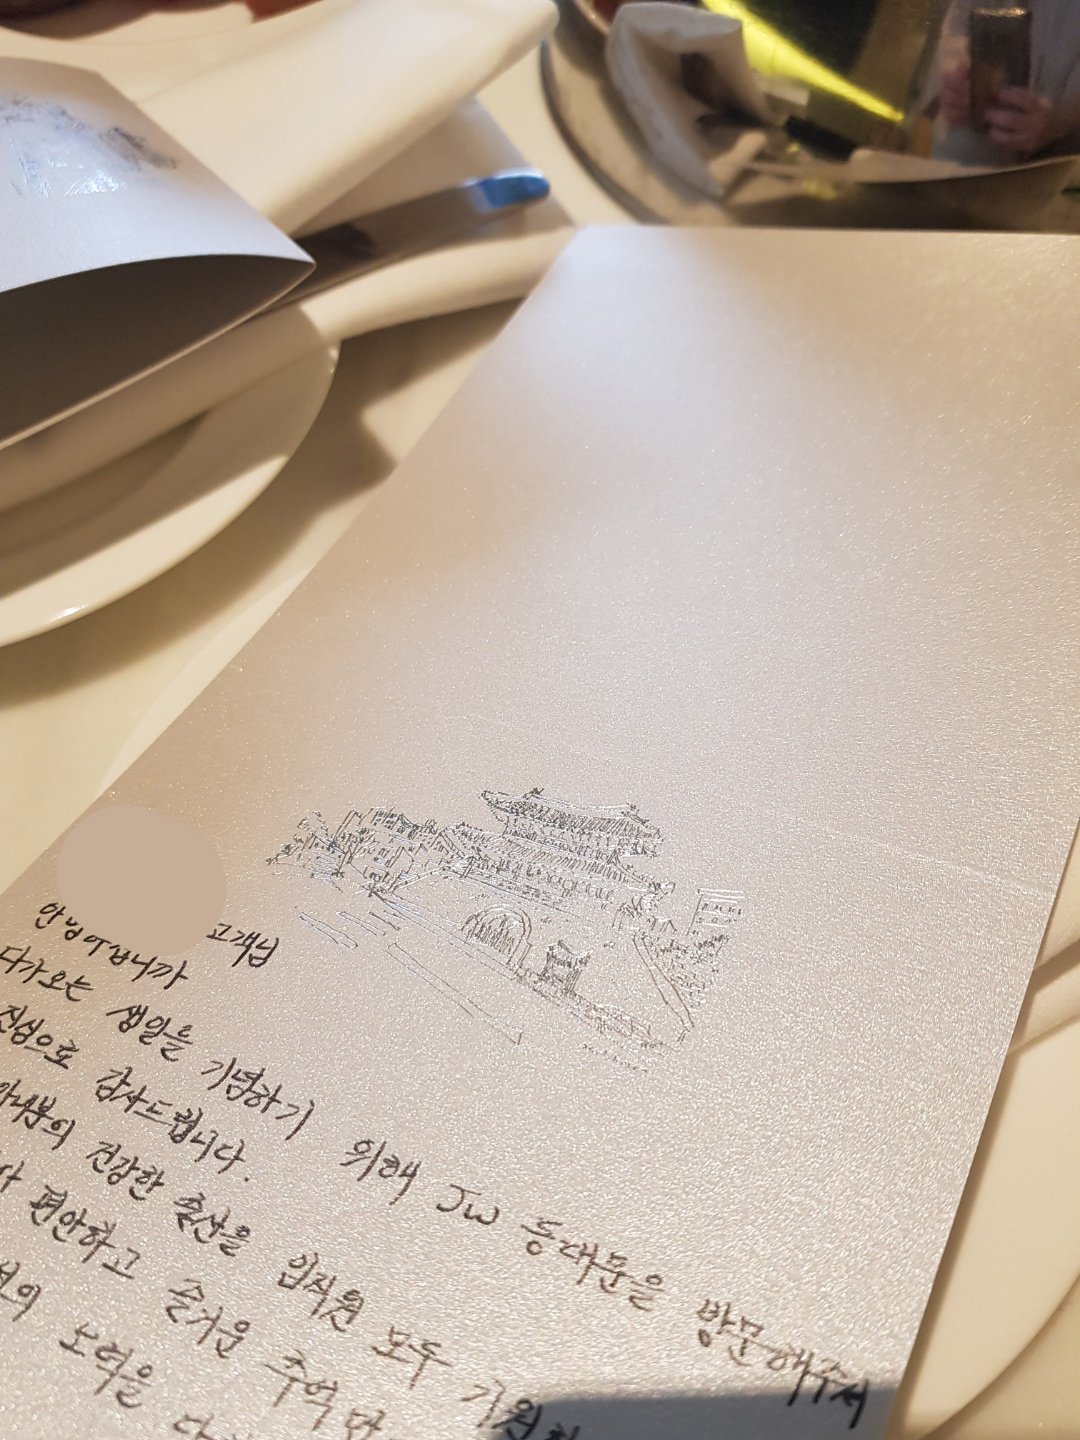 고객님
안녕하십니까
다가오는 생일을 기념하기 위해 JW 동대문을 방문해주셔
진심으로 감사드립니다.
아내분의 건강한 출산을 임직원 모두 기원
편안하고 즐거운 추억만
노력을